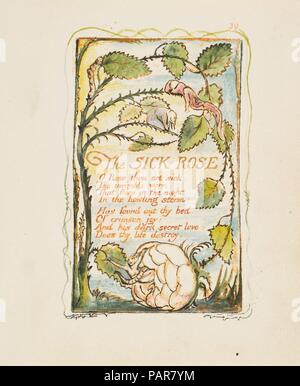 39
The SICK ROSE
O Rose thou art sick.
The invisible worm,
That flies in the night
In the howling storm:
Has found out thy bed
Of crimson joy:
And his dark secret love
Does thy life destroy.
alamy
Image ID: PAR7YM
www.alamy.com